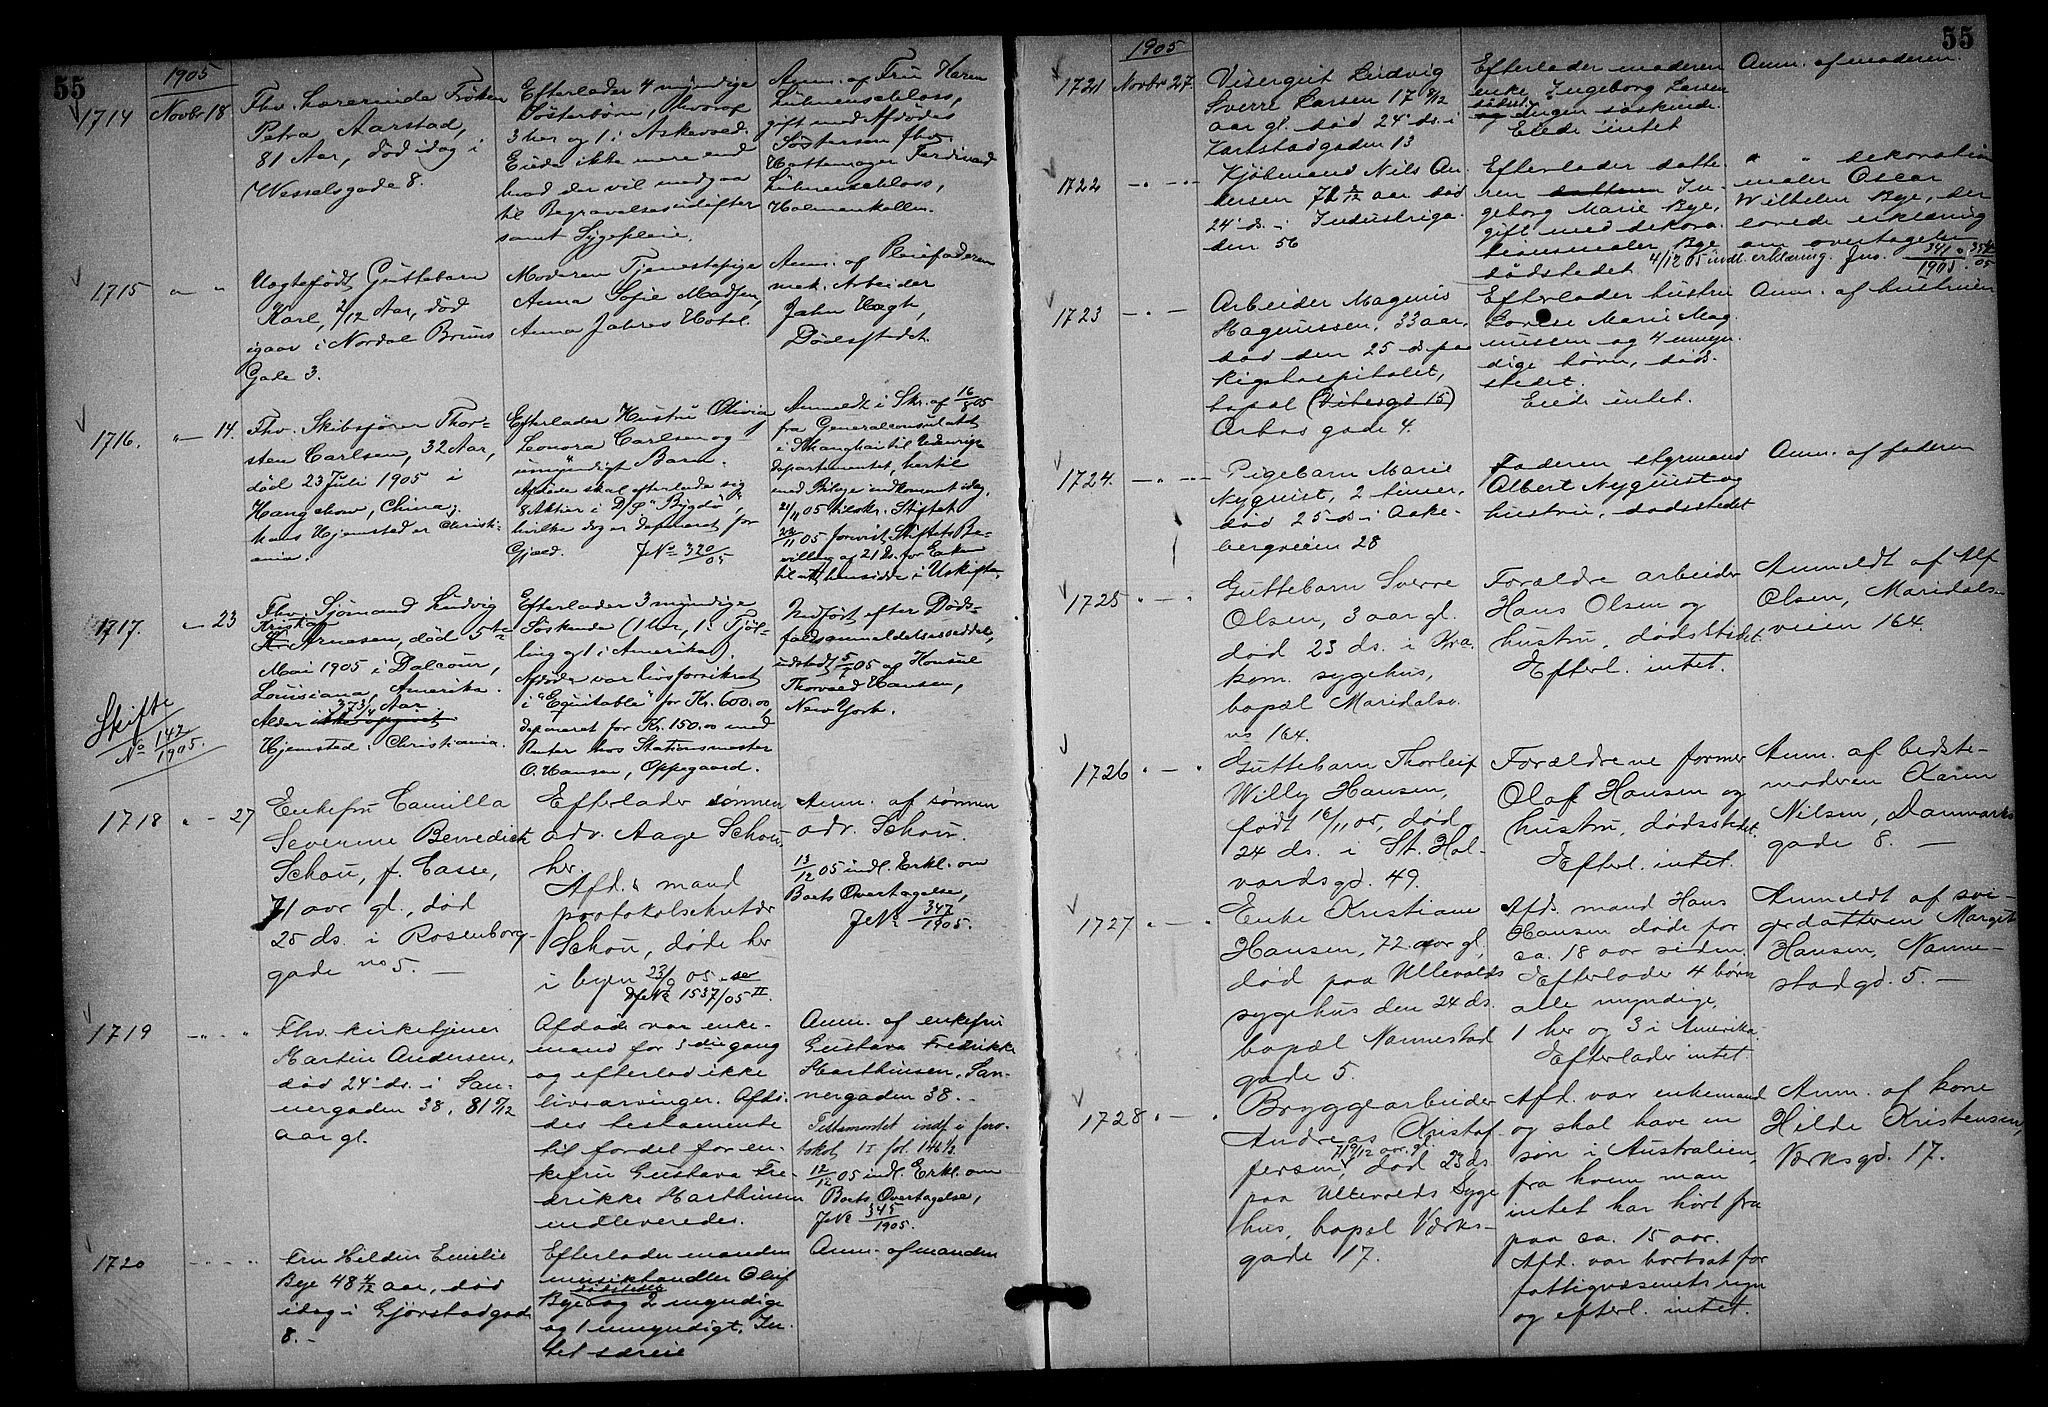 55
1905
1714
Novbr 18
Fhv. Lærerinde Frøken
Petra Aarstad,
81 Aar, død idag i
Wesselsgade 8.
Efterlader 4 myndige
Søsterbørn, hvoraf
3 her og 1 i Askevold.
Eiede ikke mere end
hvad der vil medgaa
til Begravelsesudgifter
samt Sygepleie.
Anm. af Fru Karen
Lühnenschloss,
gift med Afdødes
Søstersøn fhv.
Hattemager Ferdinad
Lühnenschloss,
Holmenkollen.
1715
" "
Uægtefødt Guttebarn
Karl, 2/12 Aar, død
igaar i Nordal Bruns
Gade 3.
Moderen Tjenestepige
Anna Sofie Madsen,
Anna Jahres Hotel.
Anm. af Pleiefaderen
mek. Arbeider
Jahn Vogt,
Dødsstedet.
1716.
" 14.
Fhv. Skibsfører Thor=
sten Carlsen, 32 Aar,
død 23 Juli 1905 i
Hangchow, China,
hans Hjemsted er Christi-
ania.
Efterlader Hustru Olivia
Leonora Carlsen og 1
umyndigt Barn.
Afdøde skal efterlade sig
8 Aktier i D/S "Bygdø",
hvilke dog er deponeret for
Gjæld. J.No 320/05
Anmeldt i Skr. af 16/8 05
fra Generalconsulatet
i Shanghai til Udenrigs-
departementet, hertil
med Bilage indkommet idag.
21/11 05 tilskr. Stiftet
22/11 05 forevist Stiftets Be-
villing af 21 ds. for Enken
til at hensidde i Uskifte.
1717.
" 23
Fhv. Sjømand Ludvig
Kristian
Arnesen, død 5te
Mai 1905 i Dalcour,
Louisiana, Amerika.
37 3/4 Aar
Alder ikke opgivet
Hjemsted: Christiania.
Efterlader 3 myndige
Søskende (1 her, 1 i Tjøl-
ling og 1 i Amerika).
Afdøde var livsforsikret
i "Equitable" for Kr. 600.00,
deponeret for Kr. 150.00 med
Renter hos Stationsmester
O. Hansen, Oppegaard.
Indført efter Døds-
faldsanmeldelsesseddel,
udstedt 5/7 05 af Konsul
Thorvald Hansen,
New York.
Skifte
No 142/1905.
1718
" - 27
Enkefru Camilla
Severine Benedicte
Schou, f. Casse,
71 aar gl., død
25 ds. i Rosenborg-
gade no 5. —
Efterlader sønnen
adv. Aage Schou,
her.
Afd.s mand
protokolsekretær
Schou, døde her
i byen 23/9 05 - se
J.No 1537/05 II.
Anm. af sønnen
adv. Schou.
13/12 05 indl. Erkl. om
Boets Overtagelse,
J.No 347/1905.
1719
- " "
Fhv. kirketjener
Martin Andersen,
død 24' ds. i San-
nergaden 38, 81 7/12
aar gl.
Afdøde var enke-
mand for 3die gang
og efterlod ikke
livsarvinger. Afdø-
des testamente
til fordel for en-
kefru Gustava Fre-
drikke Marthinsen
indleveredes.
Anm. af enkefru
Gustava Fredrikke
Marthinsen, San-
nergaden 38. -
Testamentet indf. i pro-
tokol II fol. 146 1/2
12/12 05 indl. Erkl. om
Boets Overtagelse,
J.No 345/1905.
1720
- - " "
Fru Heldin Emilie
Bye 48 4/12 aar, død
idag i Gjørstadgade
8. -
Efterlader manden
musikhandler Oluf
dødstedet
Bye og 2 myndige
og 1 umyndigt. In-
tet særeie
Anm. af manden
55
1905
1721
Novbr 27.
Visergut Ludvig
Sverre Larsen 17 8/12
aar gl. død 24' ds. i
Karlstadgaden 13
Efterlader moderen
enke Ingeborg Larsen
sidst.
og Ingen søskende.
Eiede intet
Anm. af moderen.
1722
- " -
Kjøbmand Nils An-
dersen 71 5/12 aar død
24' ds. i Industriga-
den 56
Efterlader datte-
ren datteren In-
geborg Marie Bye,
gift med dekora-
tionsmaler Bye
dødstedet
" " dekorations
maler Oscar
Wilhelm Bye, der
lovede erklæring
om overtagelse
4/12 05 indl. erklæring. Jno. 341/1905
1723
- " -
Arbeider Magnus
Magnussen, 33 aar,
død den 25 ds paa
Rigshospitalet,
bopæl (Vibesgd 15)
Aarhus gade 4.
Efterlader hustru
Lovise Marie Mag-
nussen og 4 umyn-
dige børn, døds-
stedet.
Eiede intet.
Anm. af hustruen
1724.
- " -
Pigebarn Marie
Nyquist, 2 timer,
død 25 ds i Aake-
bergveien 28
Faderen styrmand
Albert Nyquist og
hustru, dødsstedet
Anm. af faderen
1725
" - "
Guttebarn Sverre
Olsen, 3 aar gl.
død 23 ds. i Kra.
kom. sygehus,
bopæl Maridalsv.
no 164.
Forældre arbeider
Hans Olsen og
hustru, dødsstedet.
Efterl. intet.
Anmeldt af Alf
Olsen, Maridals-
veien 164.
1726
" - "
Guttebarn Thorleif
Willy Hansen,
født 16/11 05, død
24 ds. i St. Hal-
vardsgd. 49.
Forældrene former
Olaf Hansen og
hustru, dødsstedet.
Efterl. intet.
Anm. af bedste-
moderen Karen
Nilsen, Danmarks
gade 8. —
1727
" - "
Enke Kristiane
Hansen, 72 aar gl,
død paa Ullevolds
sygehus den 24 ds.
bopæl Nannestad
gade 5.
Afds. mand Hans
Hansen døde for
ca. 18 aar siden.
Efterlader 4 børn
alle myndige,
1 her og 3 i Amerika.
Efterlader intet
Anmeldt af svi-
gerdatteren Margit
Hansen, Nanne-
stadgd. 5. —
1728
" - "
Bryggearbeider
Andreas Kristof-
71 9/12 aar gl.
fersen, død 23 ds.
paa Ullevolds Syge
hus, bopæl Værks-
gade 17.
Afd. var enkemand
og skal have en
søn i Australien,
fra hvem man
intet har hørt fra
paa ca. 15 aar.
Afd. var bortsat for
fattigvæsenets regn
og efterl. intet.
Anm. af kone
Hilde Kristensen,
Værksgd. 17.